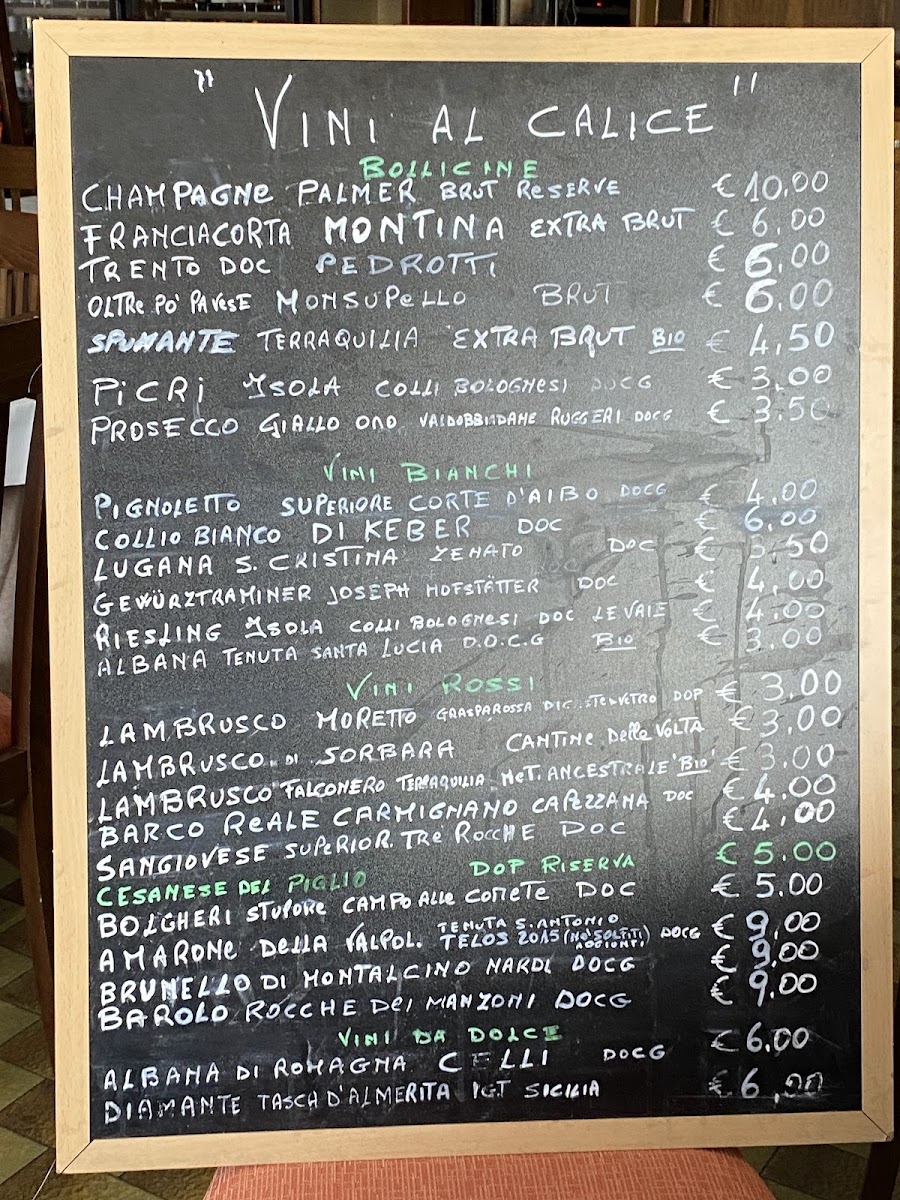 "VINI AL CALICE"
BOLLICINE
CHAMPAGNE PALMER BRUT RESERVE € 10,00
FRANCIACORTA MONTINA EXTRA BRUT € 6,00
TRENTO DOC PEDROTTI € 6,00
OLTRE PO' PAVESE MONSUPELLO BRUT € 6,00
SPUMANTE TERRAQUILIA EXTRA BRUT BIO € 4,50
PICRI ISOLA COLLI BOLOGNESI DOCG € 3,00
PROSECCO GIALLO ORO VALDOBBIADAME RUGGERI DOCG € 3.50
VINI BIANCHI
PIGNOLETTO SUPERIORE CORTE D'AIBO DOCG € 4,00
COLLIO BIANCO DI KEBER DOC € 6,00
LUGANA S. CRISTINA ZENATO DOC € 3,50
GEWÜRZTRAMINER JOSEPH HOFSTÄTTER DOC € 4,00
RIESLING ISOLA COLLI BOLOGNESI DOC LE VAIE € 4,00
ALBANA TENUTA SANTA LUCIA D.O.C.G BIO € 3,00
VINI ROSSI
LAMBRUSCO MORETTO GRASPAROSSA DOP € 3,00
LAMBRUSCO DI SORBARA CANTINE Della VOLTA € 3,00
LAMBRUSCO FALCONERO TERRAQUILIA MET. ANCESTRALE 'BIO' € 3,00
BARCO REALE CARMIGNANO CAPEZZANA DOC € 4,00
SANGIOVESE SUPERIOR. TRE ROCCHE DOC € 4,00
CESANESE DEL PIGLIO DOP RISERVA € 5.00
BOLGHERI STUPORE CAMPO Alle COMETE DOC € 5,00
AMARONE DELLA VALPOL. TENUTA S. ANTONIO TELOS 2015 (NO SOLFITI AGGIUNTI) DOCG € 9,00
BRUNELLO DI MONTALCINO NARDI DOCG € 9,00
BAROLO ROCCHE DEI MANZONI DOCG € 9,00
VINI DA DOLCE
ALBANA DI ROMAGNA CELLI DOCG € 6,00
DIAMANTE TASCA D'ALMERITA IGT SICILIA € 6,00